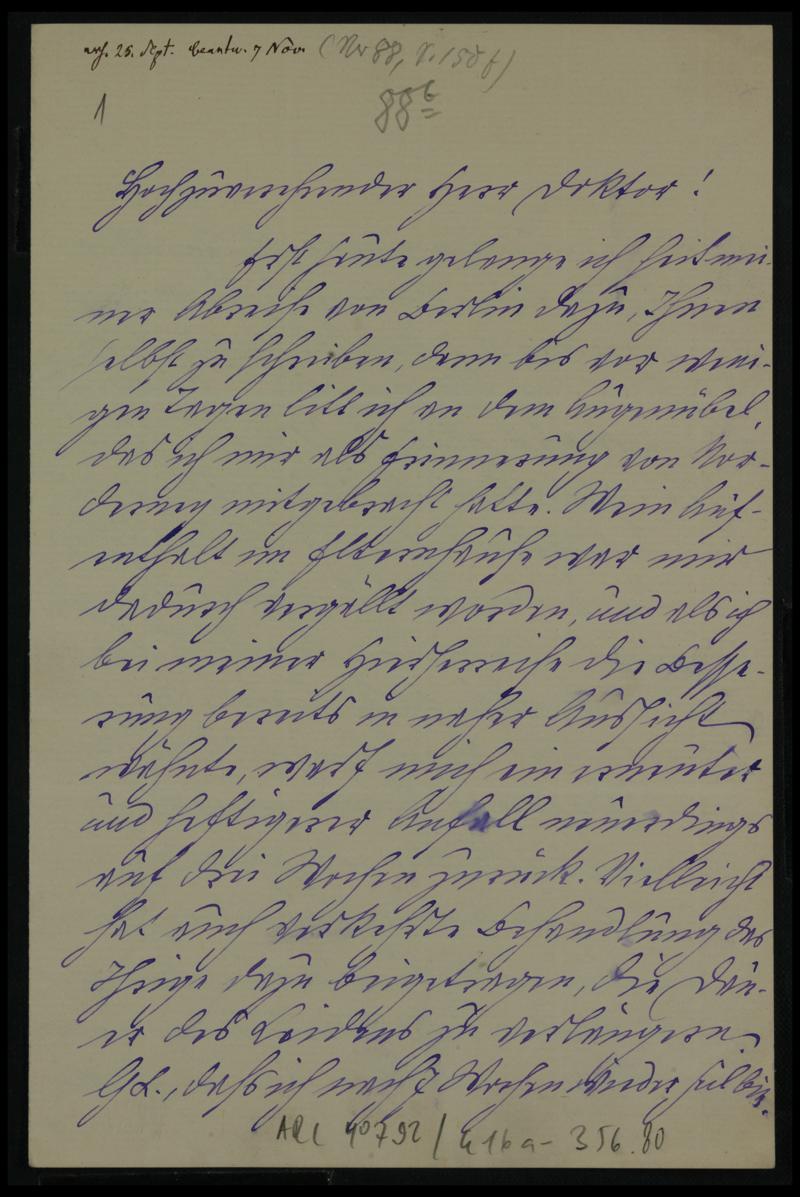 erh. 25. Sept. beantw. 7 Nov. (Nr 88, V. 158 f)
1
88 b
Hochzuverehrender Herr Doktor!
Erst heute gelange ich seit mei-
ner Abreise von Berlin dazu, Ihnen
selbst zu schreiben, denn bis vor weni-
gen Tagen litt ich an dem Augenübel,
das ich mir als Erinnerung von Nor-
derney mitgebracht hatte. Mein Auf-
enthalt im Elternhause war mir
dadurch vergällt worden, und als ich
bei meiner Hierherreise die Besse-
rung bereits in naher Aussicht
wähnte, warf mich ein erneuter
und heftigerer Anfall neuerdings
auf drei Wochen zurück. Vielleicht
hat auch verkehrte Behandlung das
Ihrige dazu beigetragen, die Dau-
er des Leidens zu verlängern.
G. L., daß ich nach 7 Wochen wieder
ARC 40792 / 416a - 356.80